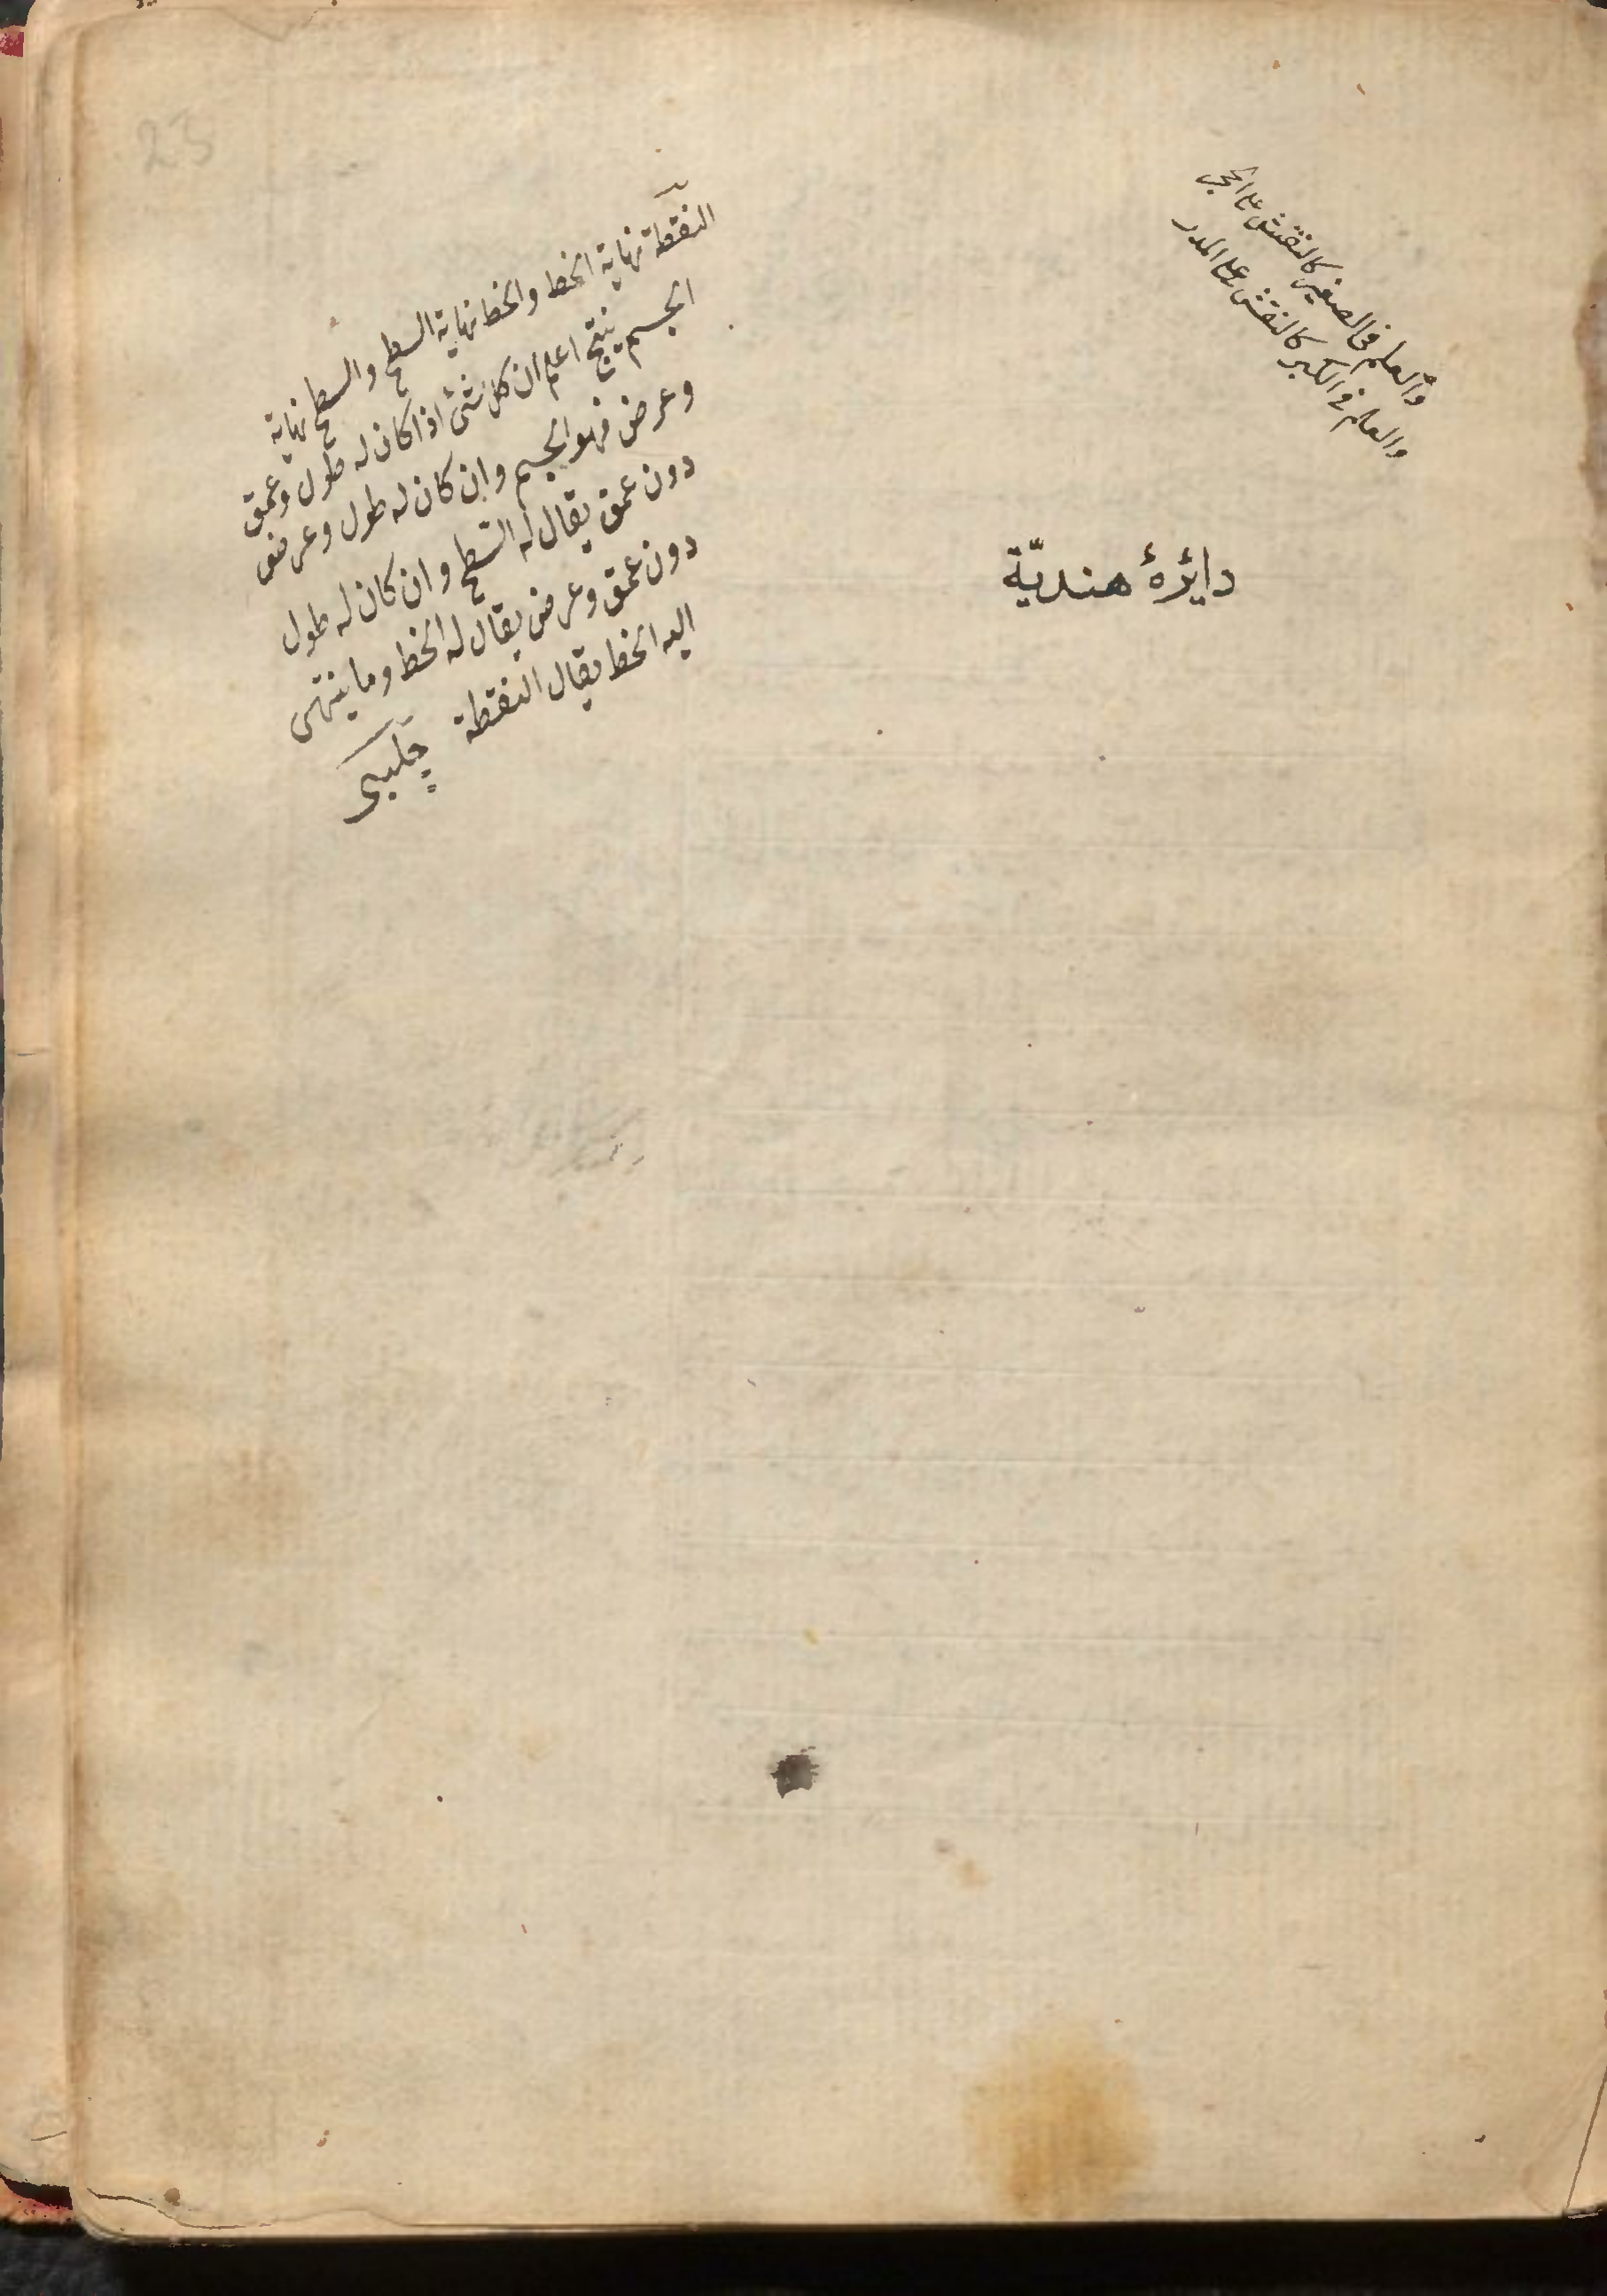 والعلم فى الصغير كالنقش على الحجر
والعلم فى الكبير كالنقش على المدر
دايرۀ هنديّة
النقطة نهاية الخط والخط نهاية السطح والسطح نهاية
الجسم ينتج اعلم ان كل شئ اذا كان له طول وعمق
وعرض فهو الجسم وان كان له طول وعرض
دون عمق يقال له السطح وان كان له طول
دون عمق وعرض يقال له الخط وما ينتهى
اليه الخط يقال النقطة چلبى
23